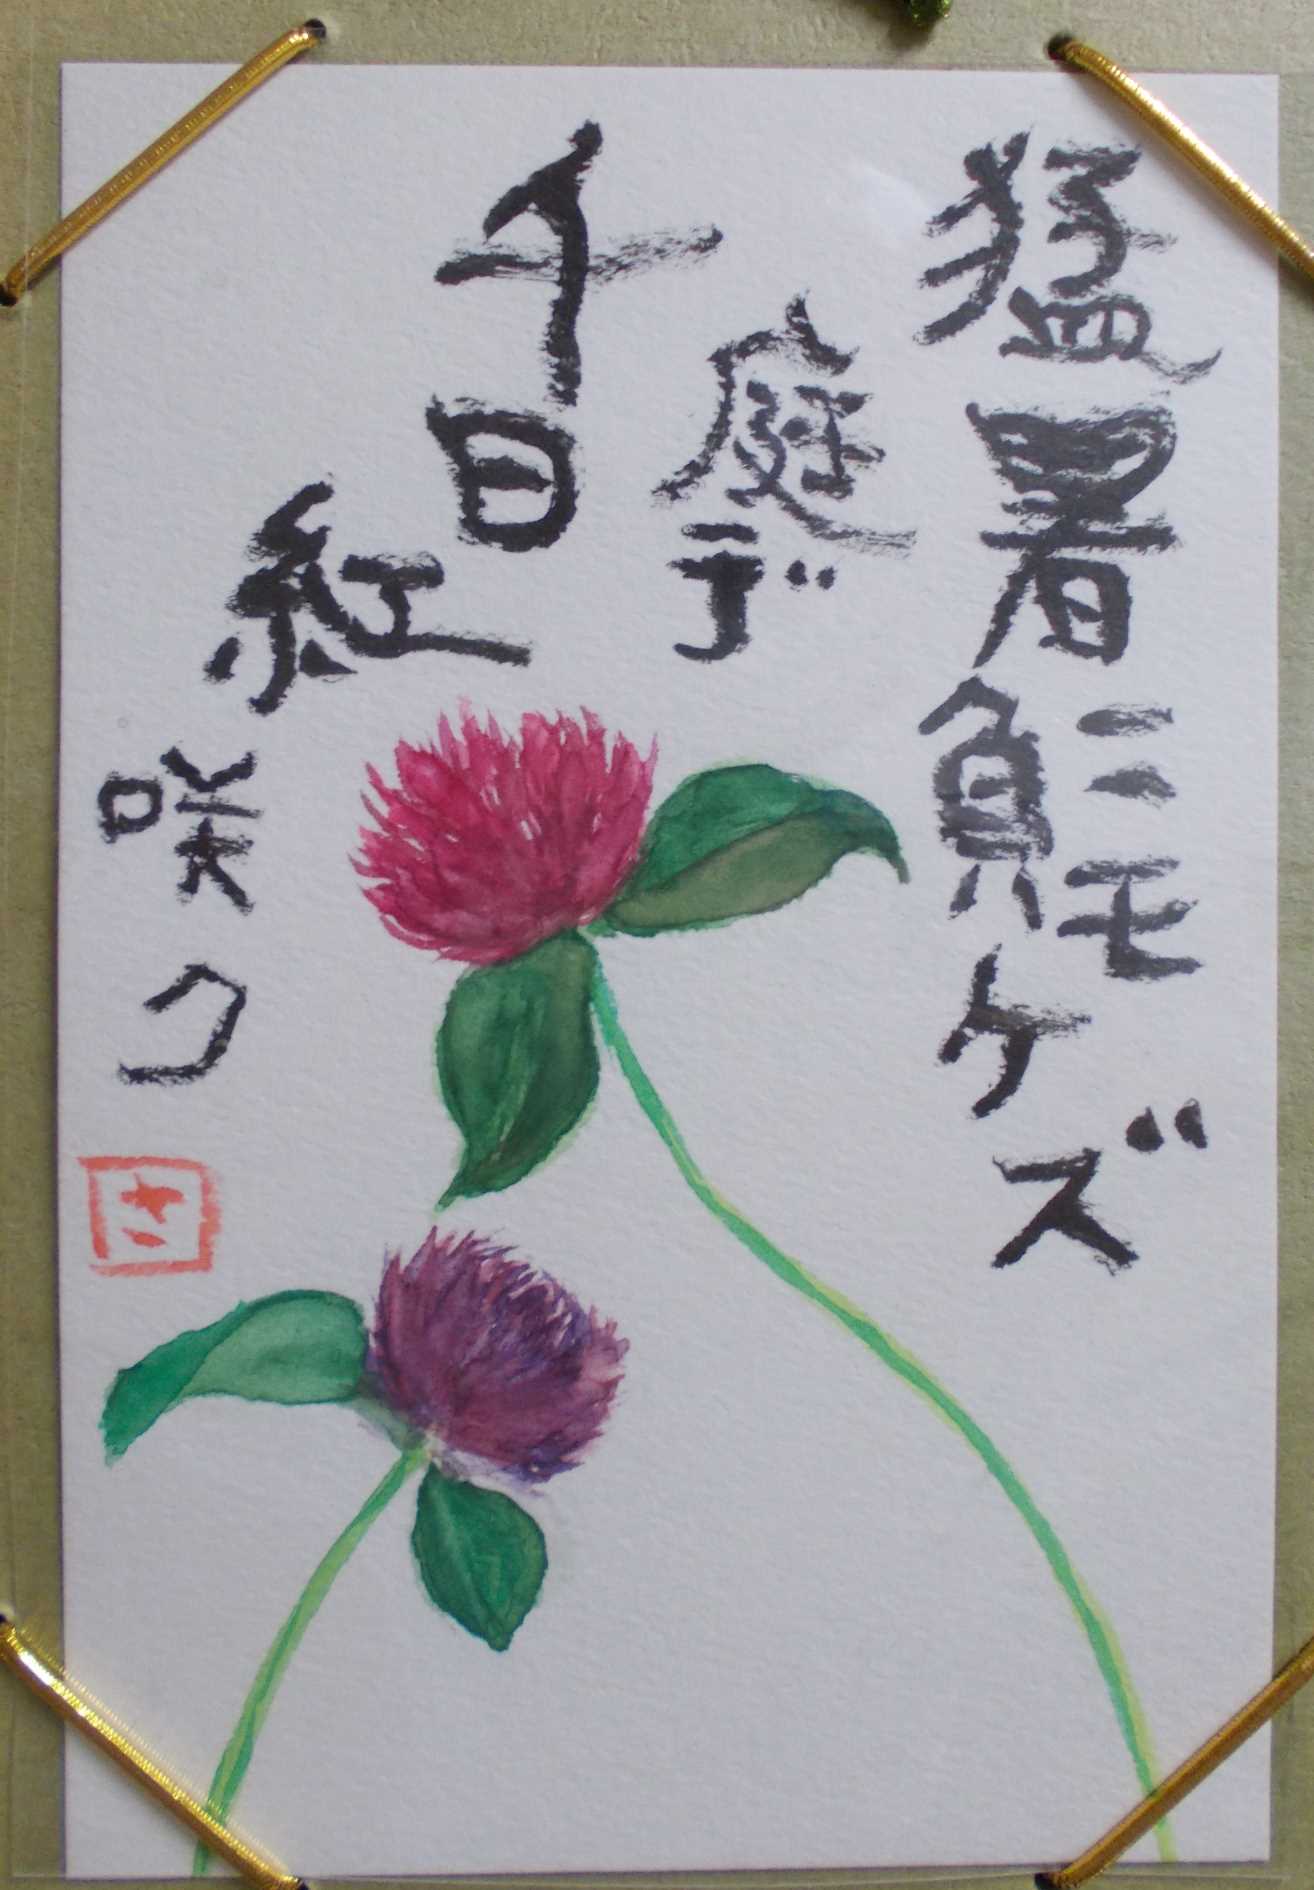 猛暑ニモ
負ケズ
庭デ
千日
紅
咲ク
さ